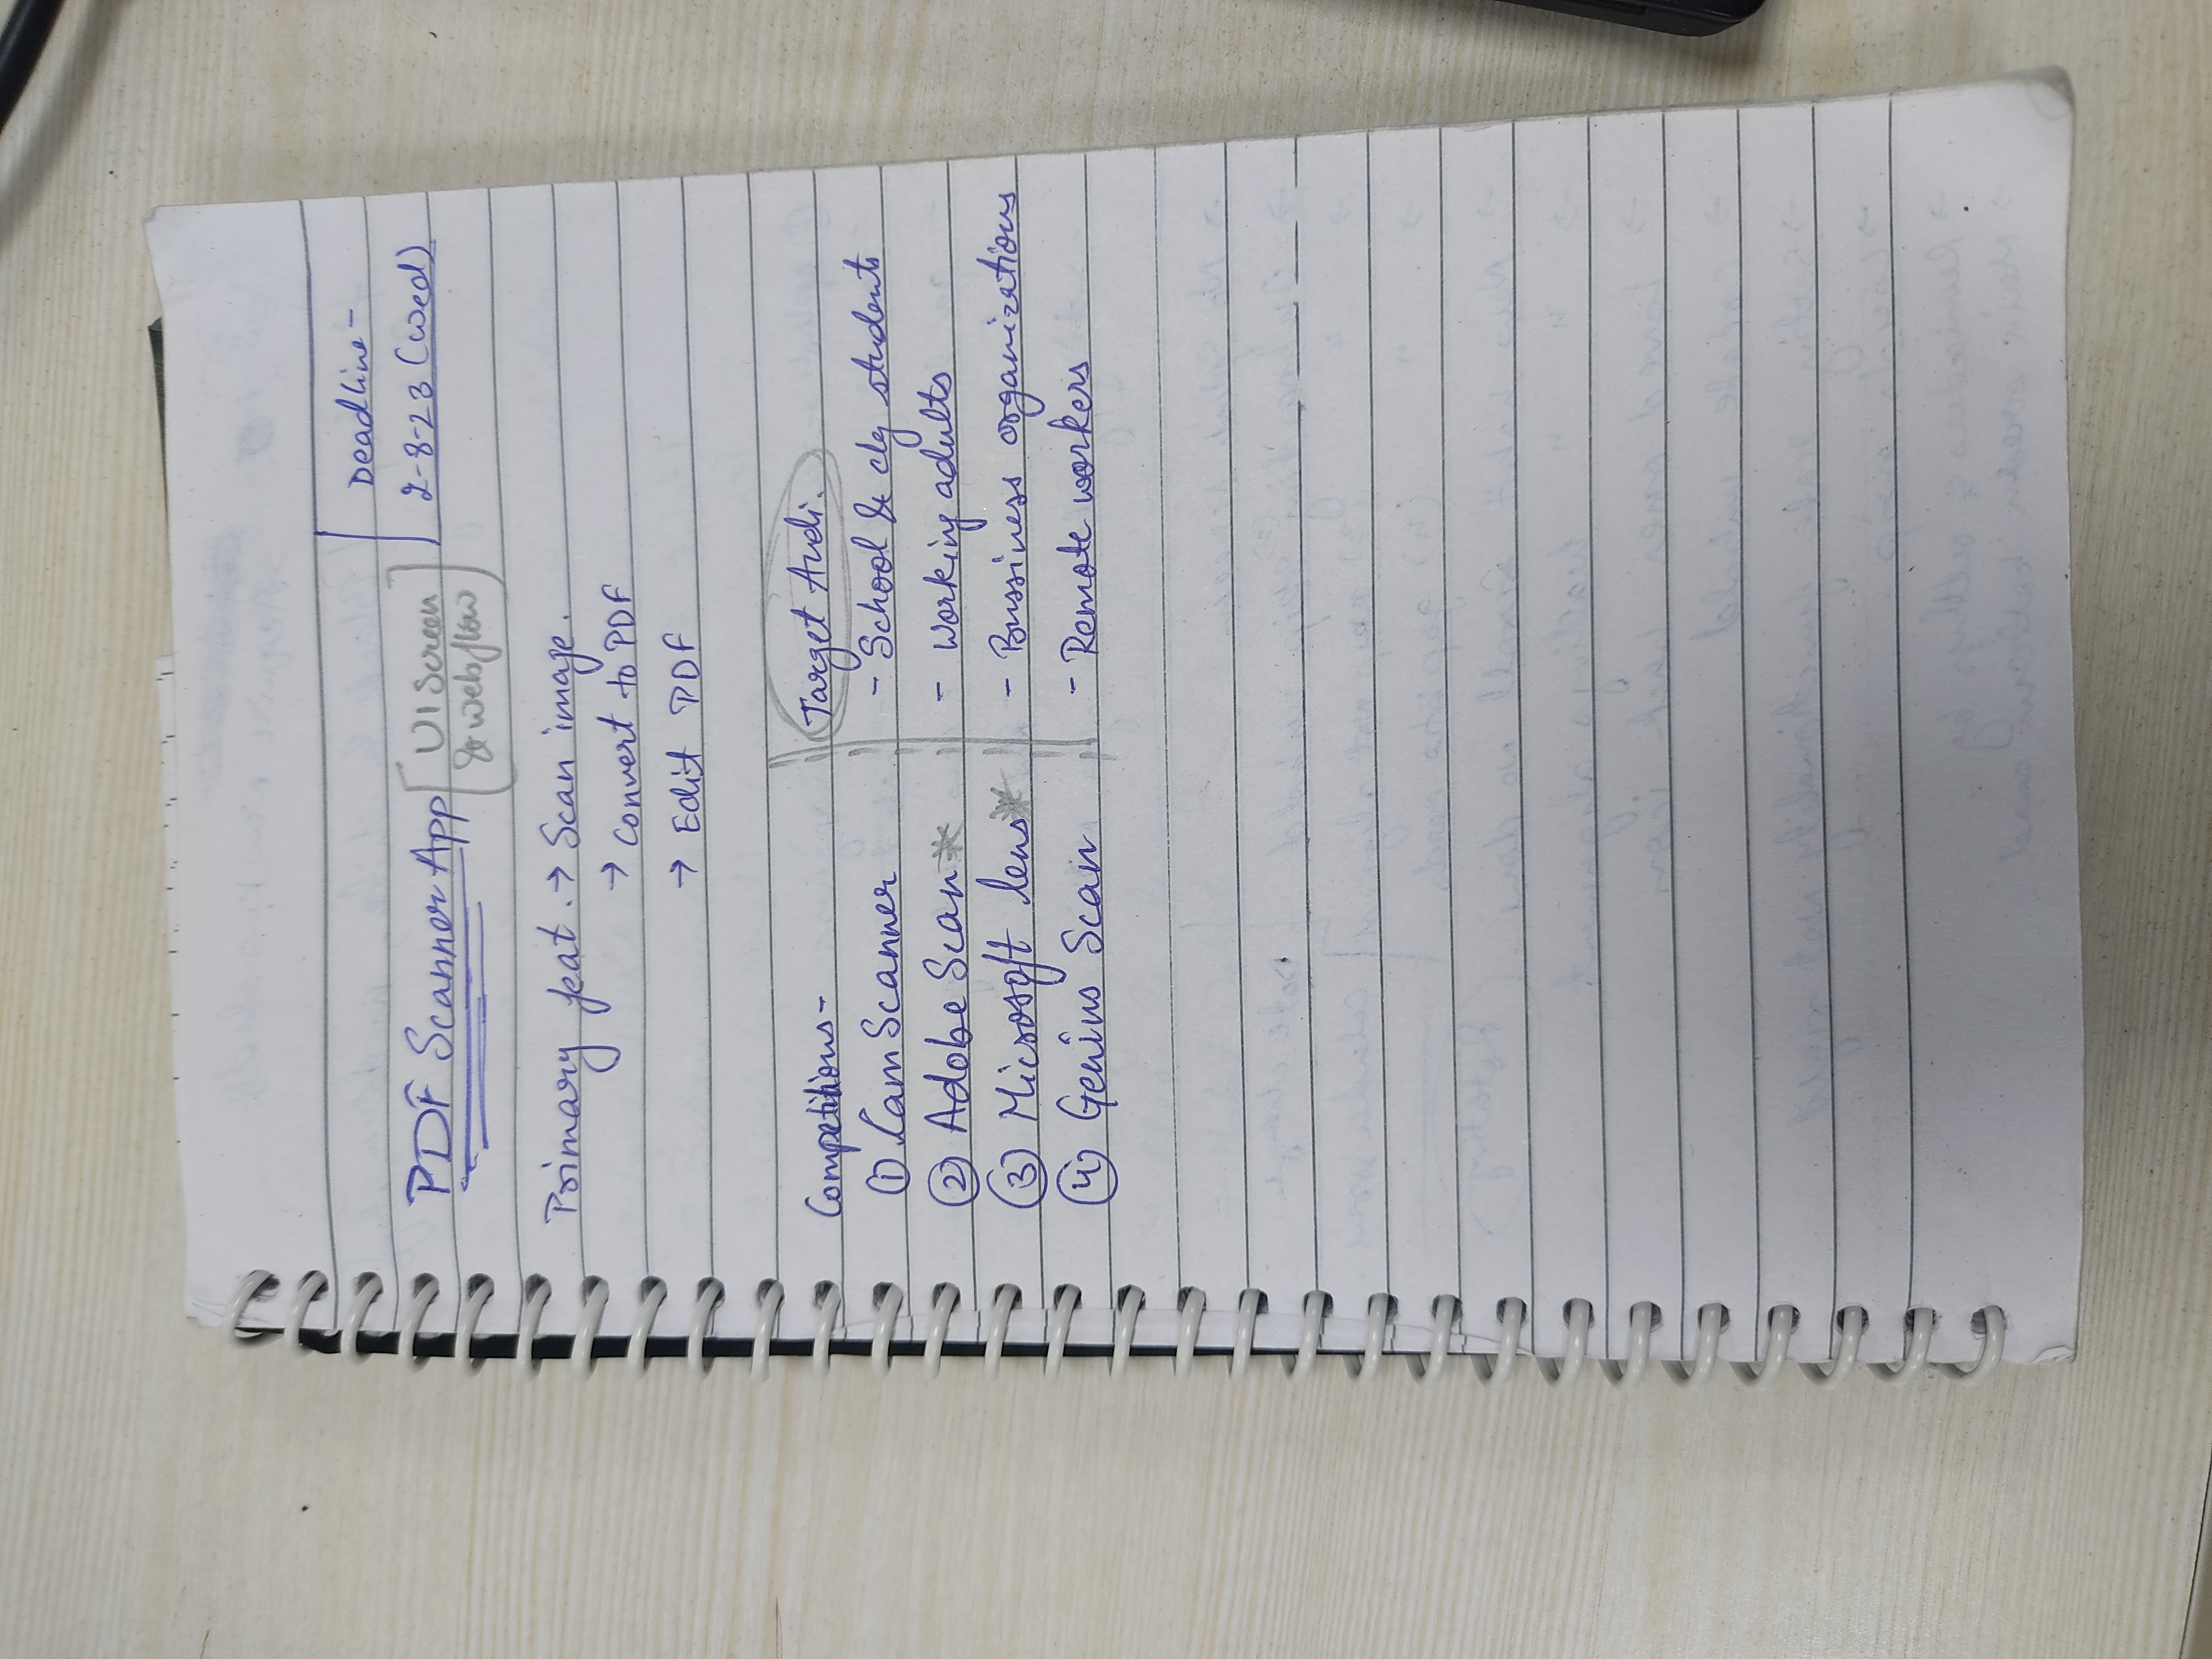 Deadline-
2-8-23 (Wed)
PDF Scanner App [UI Screen
& webflow]
Primary feat. → Scan image.
→ Convert to PDF
→ Edit PDF
Competitions-
① CamScanner
② Adobe Scan *
③ Microsoft lens *
④ Genius Scan
Target Audi.
- School & clg students
- Working adults
- Bussiness organizations
- Remote workers